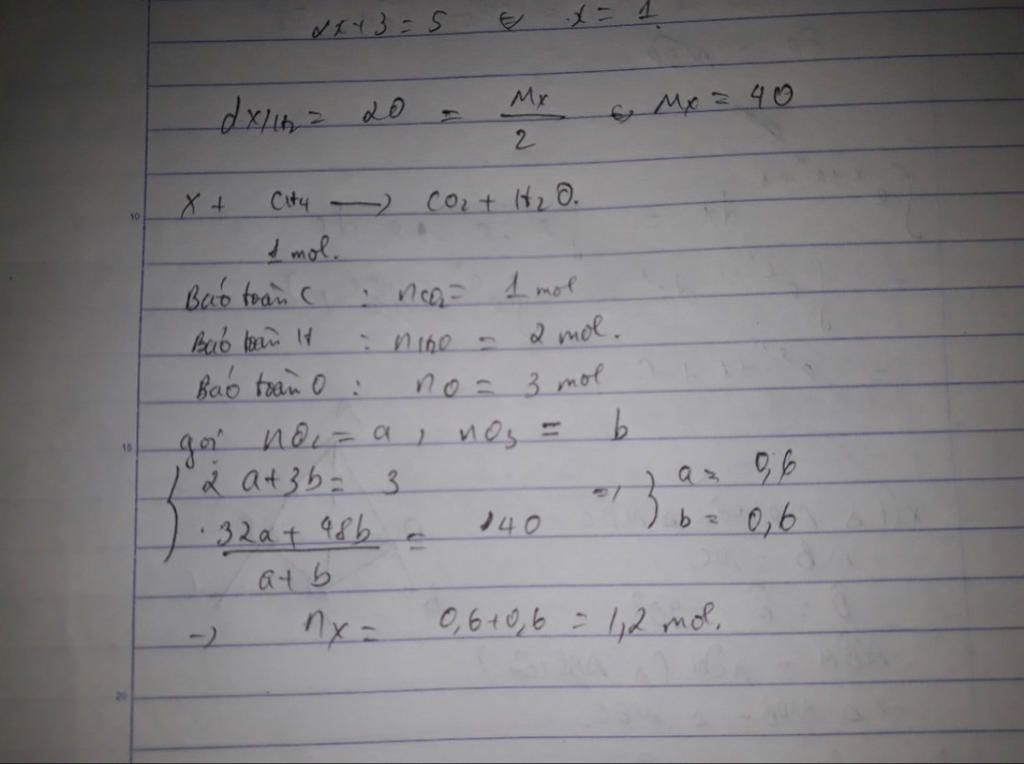 2x+3=5 ⇔ x=1
dX/H2 = 20 = Mx/2 ⇔ Mx = 40
10
X + CH4 → CO2 + H2O.
1 mol.
Bảo toàn C : nCO2 = 1 mol
Bảo toàn H : nH2O = 2 mol.
Bảo toàn O : nO = 3 mol
15
gọi nO2 = a, nO3 = b
2a+3b = 3 => a = 0,6
(32a+48b)/(a+b) = 40 b = 0,6
→ nX = 0,6+0,6 = 1,2 mol.
20